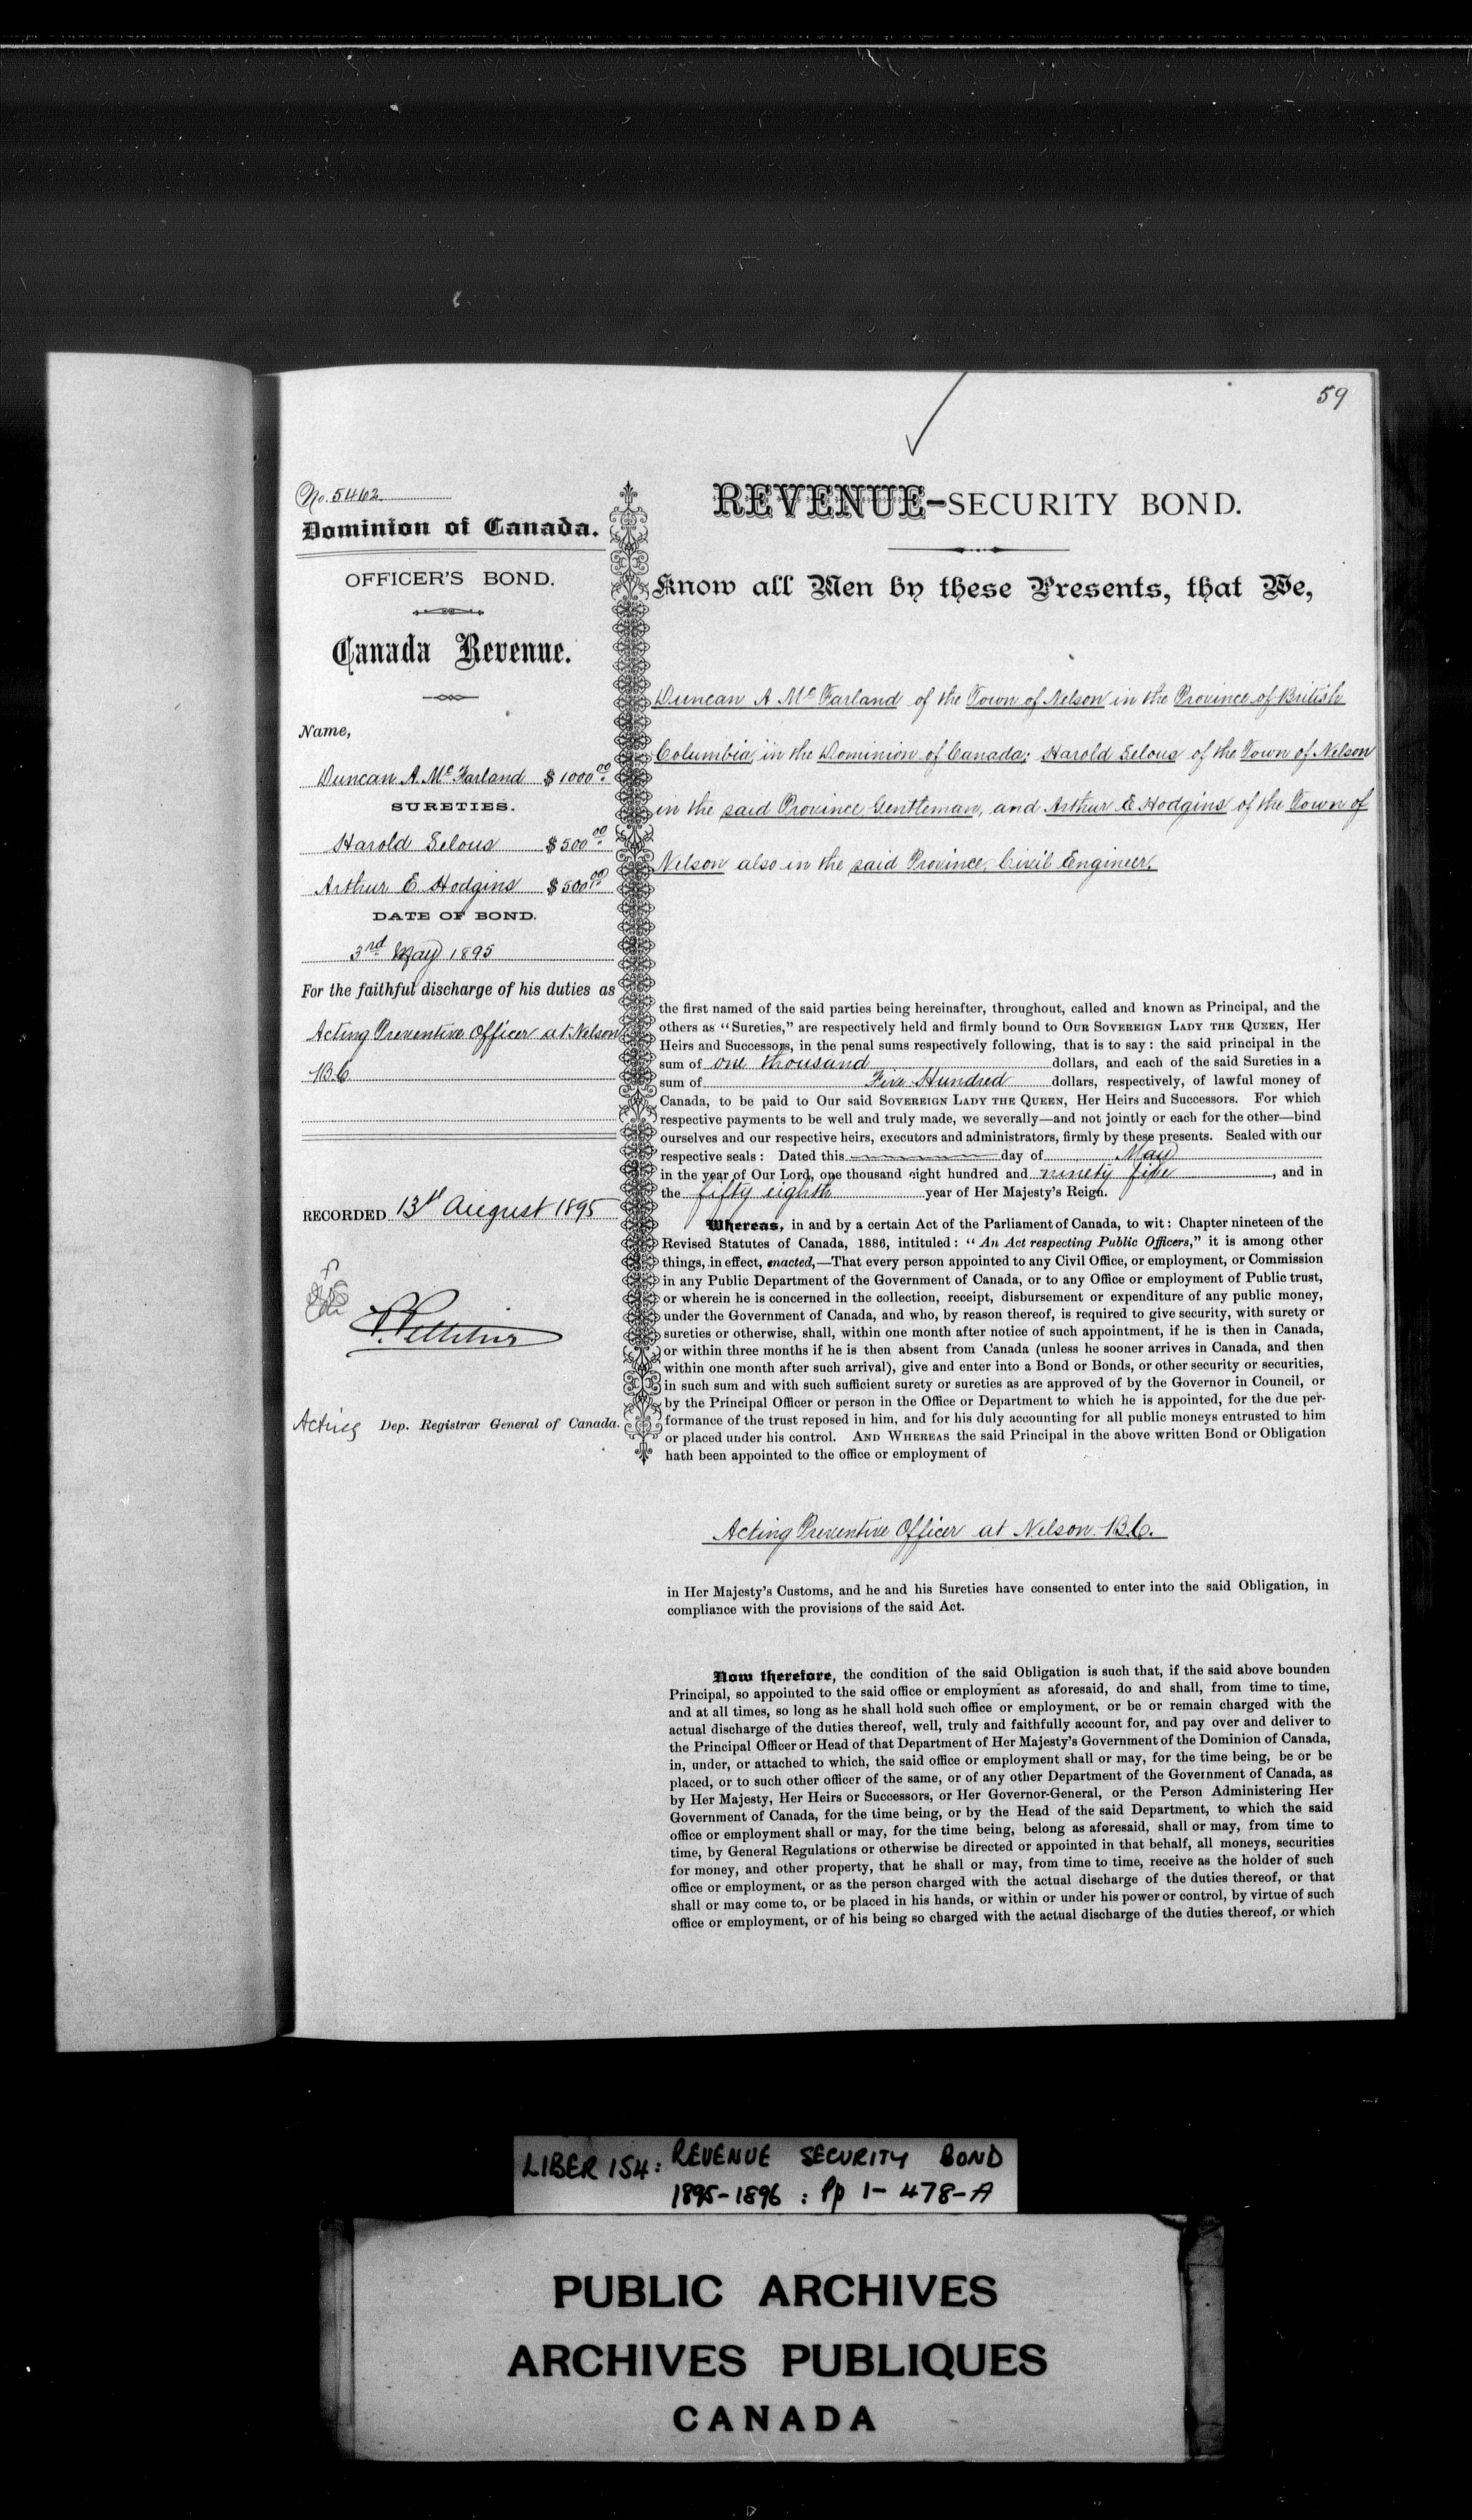 59
No. 5462
Dominion of Canada.
OFFICER'S BOND.
Canada Revenue.
Name,
Duncan A. Mc Farland $ 1000 00
SURETIES.
Harold Selous $ 500 00
Arthur E. Hodgins $ 500 00
DATE OF BOND.
3rd May 1895
For the faithful discharge of his duties as
Acting Preventive Officer at Nelson
B.C
RECORDED 13th August 1895
Acting Dep. Registrar General of Canada.
REVENUE-SECURITY BOND.
Know all Men by these Presents, that We,
Duncan A Mc Farland of the Town of Nelson in the Province of British
Columbia, in the Dominion of Canada; Harold Selous of the Town of Nelson
in the said Province Gentleman, and Arthur E Hodgins of the Town of
Nelson also in the said Province, Civil Engineer.
the first named of the said parties being hereinafter, throughout, called and known as Principal, and the
others as "Sureties," are respectively held and firmly bound to OUR SOVEREIGN LADY THE QUEEN, Her
Heirs and Successors, in the penal sums respectively following, that is to say: the said principal in the
sum of one thousand dollars, and each of the said Sureties in a
sum of Five Hundred dollars, respectively, of lawful money of
Canada, to be paid to Our said SOVEREIGN LADY THE QUEEN, Her Heirs and Successors. For which
respective payments to be well and truly made, we severally—and not jointly or each for the other—bind
ourselves and our respective heirs, executors and administrators, firmly by these presents. Sealed with our
respective seals: Dated this day of May
in the year of Our Lord, one thousand eight hundred and ninety five, and in
the fifty eighth year of Her Majesty's Reign.
Whereas, in and by a certain Act of the Parliament of Canada, to wit: Chapter nineteen of the
Revised Statutes of Canada, 1886, intituled: "An Act respecting Public Officers," it is among other
things, in effect, enacted,—That every person appointed to any Civil Office, or employment, or Commission
in any Public Department of the Government of Canada, or to any Office or employment of Public trust,
or wherein he is concerned in the collection, receipt, disbursement or expenditure of any public money,
under the Government of Canada, and who, by reason thereof, is required to give security, with surety or
sureties or otherwise, shall, within one month after notice of such appointment, if he is then in Canada,
or within three months if he is then absent from Canada (unless he sooner arrives in Canada, and then
within one month after such arrival), give and enter into a Bond or Bonds, or other security or securities,
in such sum and with such sufficient surety or sureties as are approved of by the Governor in Council, or
by the Principal Officer or person in the Office or Department to which he is appointed, for the due per-
formance of the trust reposed in him, and for his duly accounting for all public moneys entrusted to him
or placed under his control. AND WHEREAS the said Principal in the above written Bond or Obligation
hath been appointed to the office or employment of
Acting Preventive Officer at Nelson. B.C.
in Her Majesty's Customs, and he and his Sureties have consented to enter into the said Obligation, in
compliance with the provisions of the said Act.
Now therefore, the condition of the said Obligation is such that, if the said above bounden
Principal, so appointed to the said office or employment as aforesaid, do and shall, from time to time,
and at all times, so long as he shall hold such office or employment, or be or remain charged with the
actual discharge of the duties thereof, well, truly and faithfully account for, and pay over and deliver to
the Principal Officer or Head of that Department of Her Majesty's Government of the Dominion of Canada,
in, under, or attached to which, the said office or employment shall or may, for the time being, be or be
placed, or to such other officer of the same, or of any other Department of the Government of Canada, as
by Her Majesty, Her Heirs or Successors, or Her Governor-General, or the Person Administering Her
Government of Canada, for the time being, or by the Head of the said Department, to which the said
office or employment shall or may, for the time being, belong as aforesaid, shall or may, from time to
time, by General Regulations or otherwise be directed or appointed in that behalf, all moneys, securities
for money, and other property, that he shall or may, from time to time, receive as the holder of such
office or employment, or as the person charged with the actual discharge of the duties thereof, or that
shall or may come to, or be placed in his hands, or within or under his power or control, by virtue of such
office or employment, or of his being so charged with the actual discharge of the duties thereof, or which
LIBER 154: REVENUE SECURITY BOND
1895-1896 : Pp 1- 478-A
PUBLIC ARCHIVES
ARCHIVES PUBLIQUES
CANADA